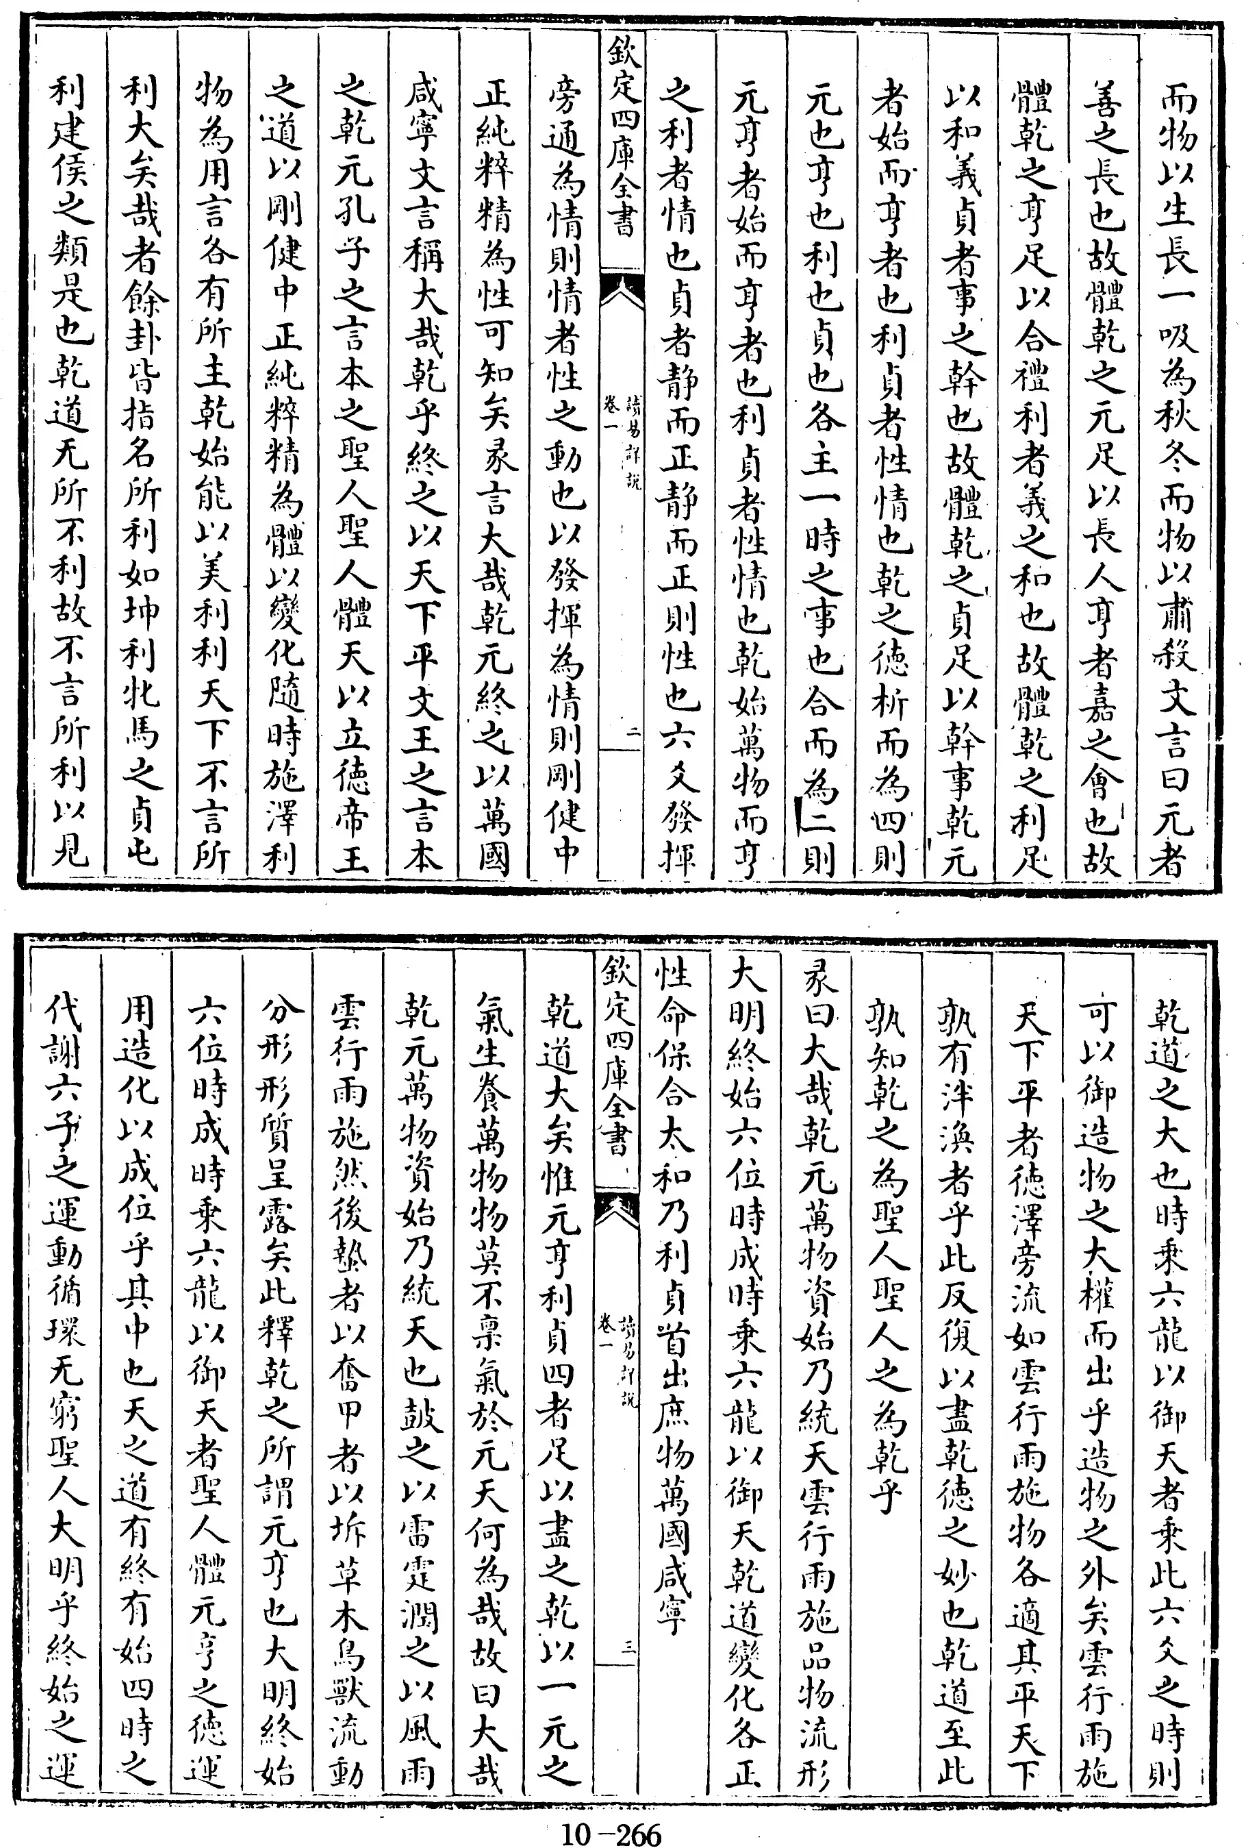 而物以生長一吸為秋冬而物以肅殺文言曰元者
善之長也故體乾之元足以長人亨者嘉之會也故
體乾之亨足以合禮利者義之和也故體乾之利足
以和義貞者事之幹也故體乾之貞足以幹事乾元
者始而亨者也利貞者性情也乾之徳析而為四則
元也亨也利也貞也各主一時之事也合而為二則
元亨者始而亨者也利貞者性情也乾始萬物而亨
之利者情也貞者静而正静而正則性也六爻發揮
欽定四庫全書
讀易詳說
卷一
二
旁通為情則情者性之動也以發揮為情則剛健中
正純粹精為性可知矣彖言大哉乾元終之以萬國
咸寧文言稱大哉乾乎終之以天下平文王之言本
之乾元孔子之言本之聖人聖人體天以立徳帝王
之道以剛健中正純粹精為體以變化隨時施澤利
物為用言各有所主乾始能以美利利天下不言所
利大矣哉者餘卦皆指名所利如坤利牝馬之貞屯
利建侯之類是也乾道无所不利故不言所利以見
乾道之大也時乘六龍以御天者乘此六爻之時則
可以御造物之大權而出乎造物之外矣雲行雨施
天下平者徳澤旁流如雲行雨施物各適其平天下
孰有泮渙者乎此反復以盡乾徳之妙也乾道至此
孰知乾之為聖人聖人之為乾乎
彖曰大哉乾元萬物資始乃統天雲行雨施品物流形
大明終始六位時成時乘六龍以御天乾道變化各正
性命保合太和乃利貞首出庶物萬國咸寧
欽定四庫全書
讀易詳說
卷一
三
乾道大矣惟元亨利貞四者足以盡之乾以一元之
氣生養萬物物莫不稟氣於元天何為哉故曰大哉
乾元萬物資始乃統天也鼓之以雷霆潤之以風雨
雲行雨施然後蟄者以奮甲者以坼草木鳥獸流動
分形形質呈露矣此釋乾之所謂元亨也大明終始
六位時成時乘六龍以御天者聖人體元亨之徳運
用造化以成位乎其中也天之道有終有始四時之
代謝六子之運動循環无窮聖人大明乎終始之運
10-266